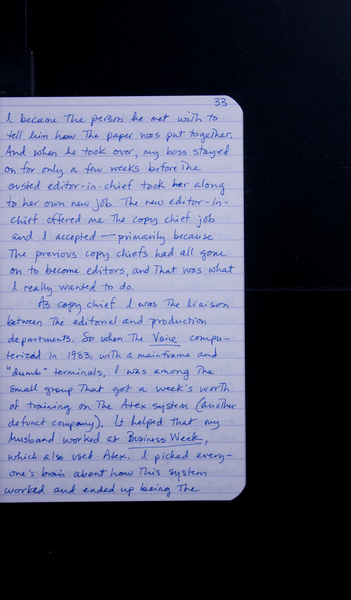 33
I became the person he met with to
tell him how the paper was put together.
And when he took over, my boss stayed
on for only a few weeks before the
ousted editor-in-chief took her along
to her own new job. The new editor-in-
chief offered me the copy chief job
and I accepted — primarily because
the previous copy chiefs had all gone
on to become editors, and that was what
I really wanted to do.
As copy chief I was the liaison
between the editorial and production
departments. So when the Voice compu-
terized in 1983, with a mainframe and
"dumb" terminals, I was among the
small group that got a week's worth
of training on the Atex system (another
defunct company). It helped that my
husband worked at Business Week,
which also used Atex. I picked every-
one's brain about how this system
worked and ended up being the